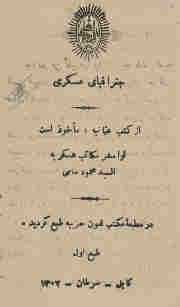 جغرافیای عسکری
از کتب عثمانیه مأخوذ است
قوماندان مکاتب عسکریه
السید محمود سامی
در مطبعهٔ مکتب فنون حربیه طبع گردید .
طبع اول
کابل — سرطان — ۱۳۰۲